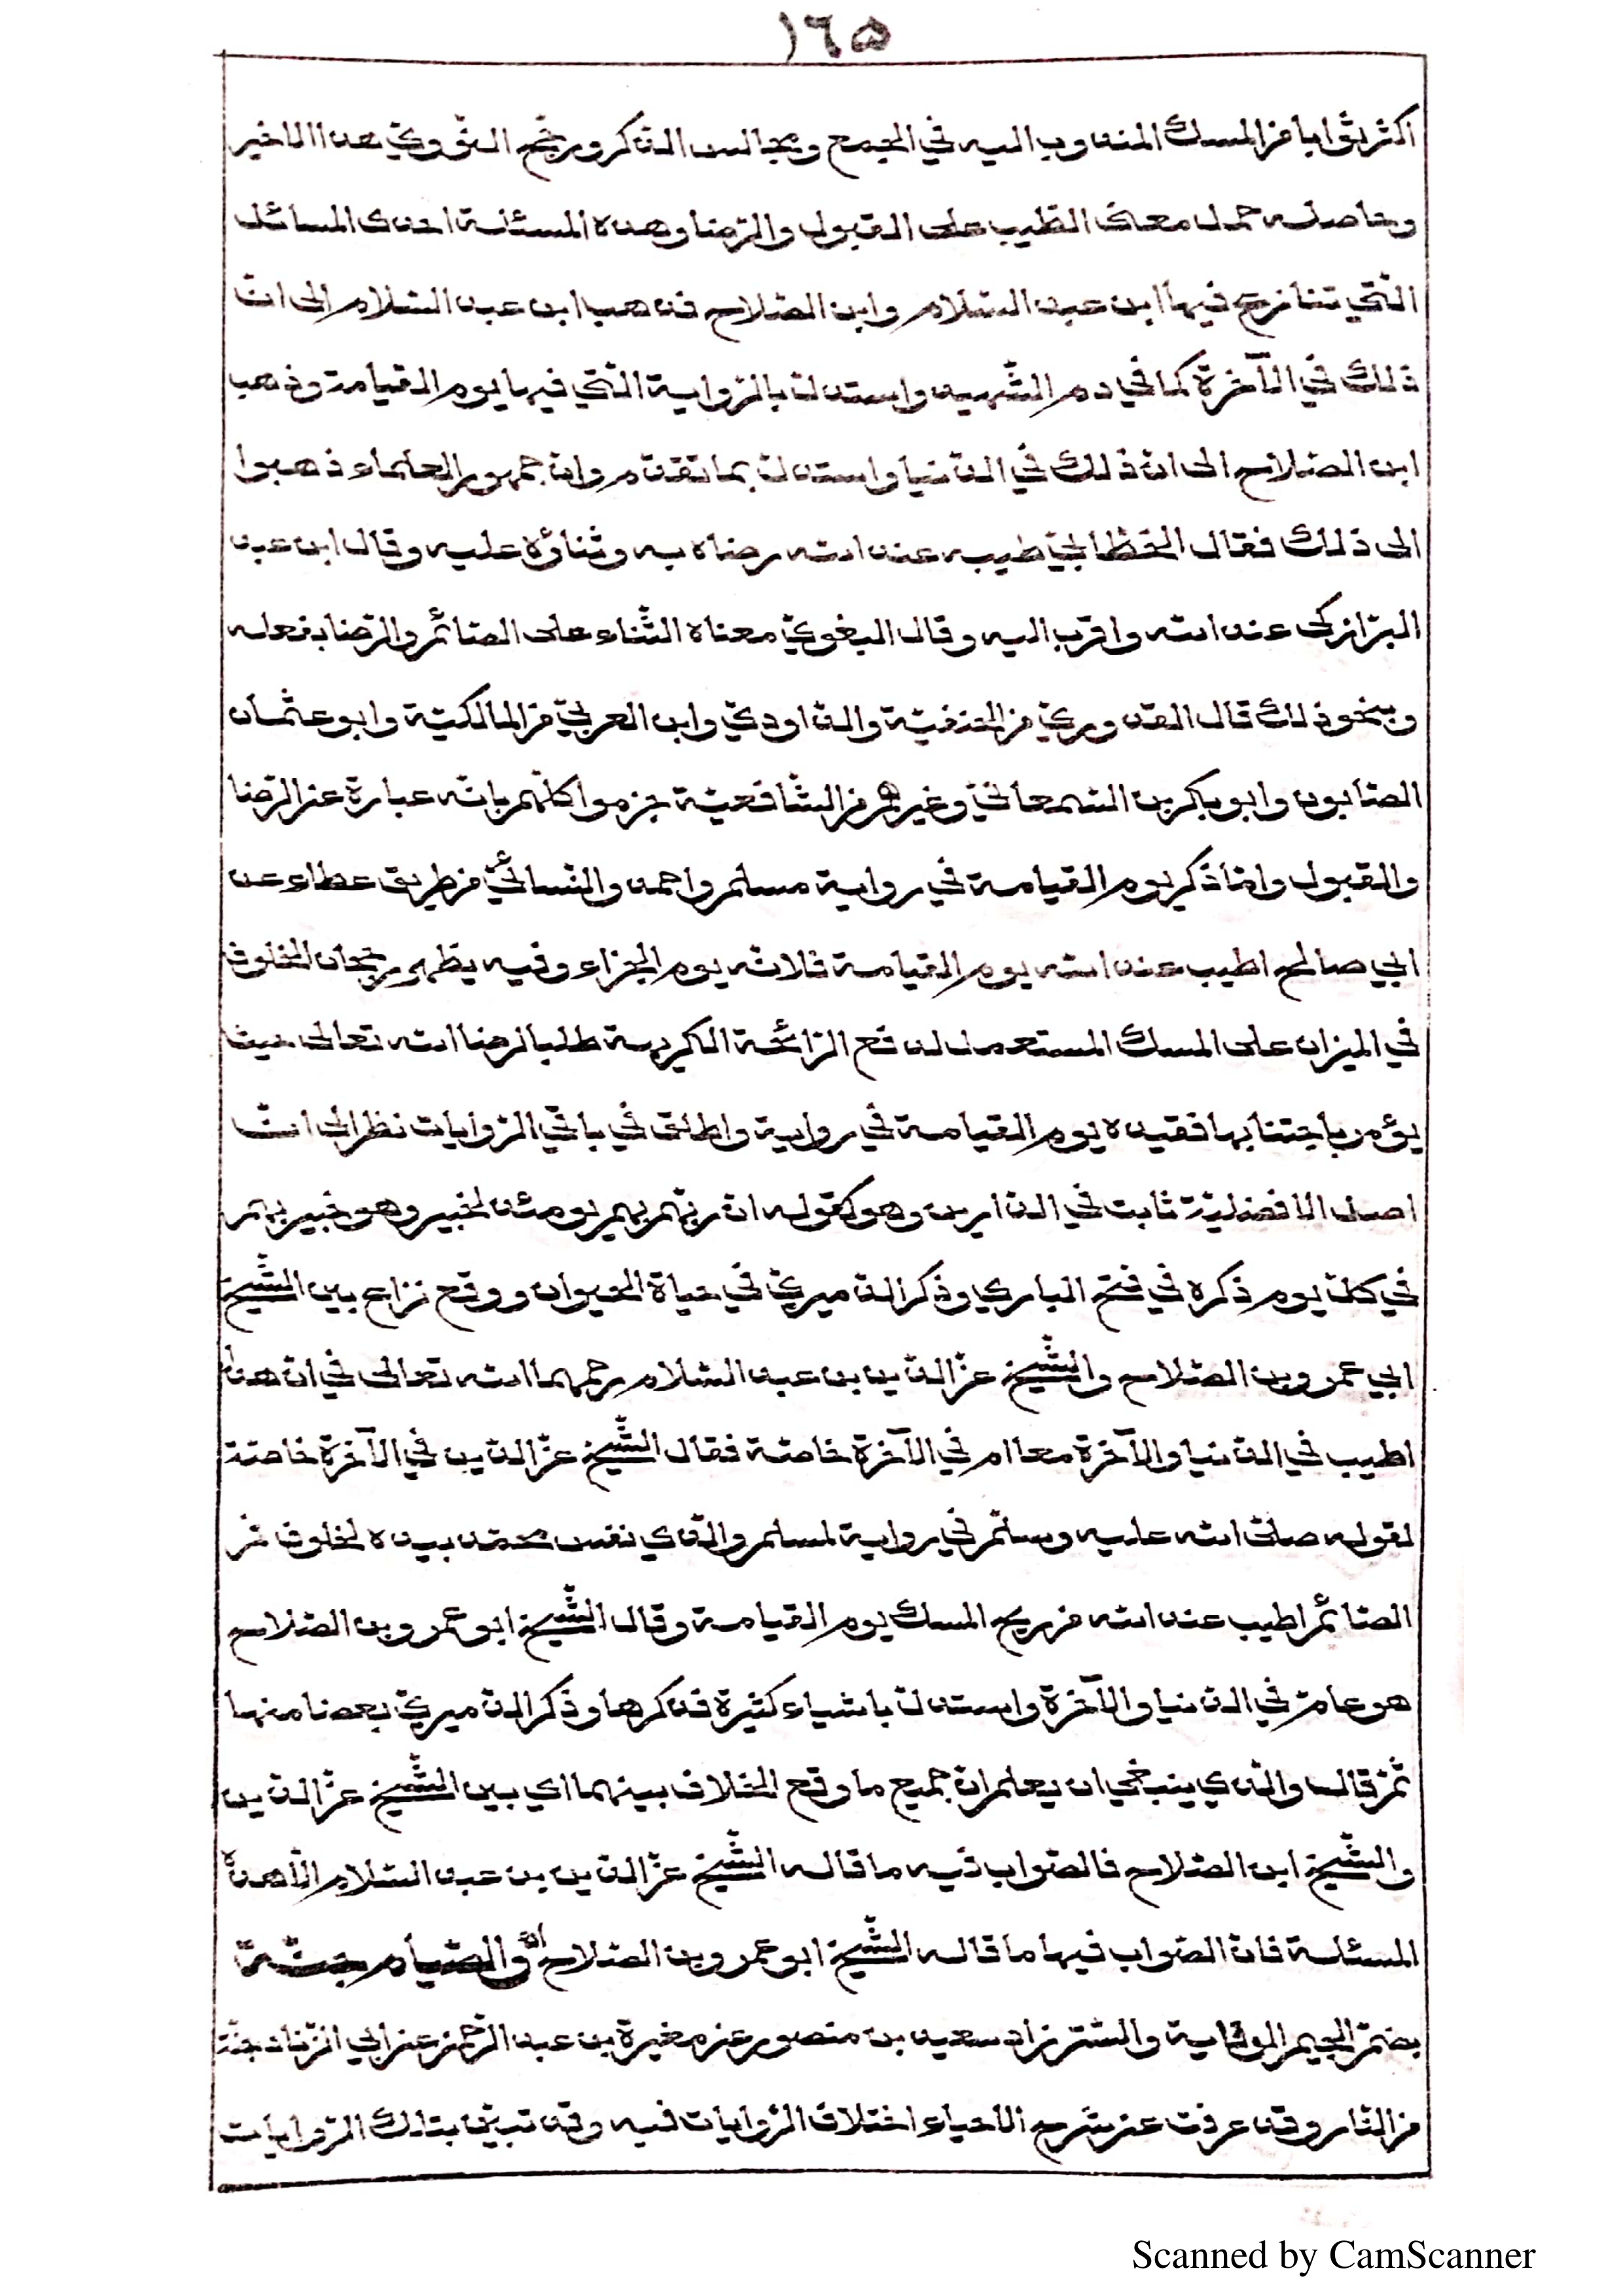 ١٦٥
اكثر ثوابا من المسك المندوب اليه في الجمع ومجالس الذكر ورجّح النّوويّ هذا الاخير
وحاصله حمل معنى الطّيب على القبول والرّضا وهذه المسئلة احدى المسائل
الّتي تنازع فيها ابن عبد السّلام وابن الصّلاح فذهب ابن عبد السّلام الى انّ
ذلك في الآخرة كما في دم الشّهيد واستدلّ بالرّواية الّتي فيها يوم القيامة وذهب
ابن الصّلاح الى انّ ذلك في الدّنيا واستدلّ بما تقدّم وانّ جمهور العلماء ذهبوا
الى ذلك فقال الخطّابيّ طيبه عند الله رضاه به وثناؤه عليه وقال ابن عبد
البرّ ازكى عند الله واقرب اليه وقال البغويّ معناه الثّناء على الصّائم والرّضا بفعله
وبنحو ذلك قال القدوريّ من الحنفيّة والدّاوديّ وابن العربيّ من المالكيّة وابو عثمان
الصّابون وابو بكر بن السّمعانيّ وغيرهم من الشّافعيّة جزموا كلّهم بانّه عبارة عن الرّضا
والقبول وامّا ذكر يوم القيامة في رواية مسلم واحمد والنّسائيّ من طريق عطاء عن
ابي صالح اطيب عند الله يوم القيامة فلانّه يوم الجزاء وفيه يظهر رجحان الخلوف
في الميزان على المسك المستعمل لدفع الرّائحة الكريهة طلبا لرضا الله تعالى حيث
يؤمر باجتنابها فقيده يوم القيامة في رواية واطلق في باقي الرّوايات نظرا الى انّ
اصل الافضليّة ثابت في الدّارين وهو كقوله انّ ربّهم بهم يومئذ لخبير وهو خبير بهم
في كلّ يوم ذكره في فتح الباري وذكر الدّميريّ في حياة الحيوان ووقع نزاع بين الشّيخ
ابي عمرو بن الصّلاح والشّيخ عزّ الدّين بن عبد السّلام رحمهما الله تعالى في انّ هذا
اطيب في الدّنيا والآخرة معا ام في الآخرة خاصّة فقال الشّيخ عزّ الدّين في الآخرة خاصّة
لقوله صلّى الله عليه وسلّم في رواية لمسلم والّذي نفس محمّد بيده لخلوف فم
الصّائم اطيب عند الله من ريح المسك يوم القيامة وقال الشّيخ ابو عمرو بن الصّلاح
هو عامّ في الدّنيا والآخرة واستدلّ باشياء كثيرة فذكرها وذكر الدّميريّ بعضا منها
ثمّ قال والّذي ينبغي ان يعلم انّ جميع ما وقع الخلاف بينهما اي بين الشّيخ عزّ الدّين
والشّيخ ابن الصّلاح فالصّواب فيه ما قاله الشّيخ عزّ الدّين بن عبد السّلام الّا هذه
المسئلة فانّ الصّواب فيها ما قاله الشّيخ ابو عمرو بن الصّلاح اه والصّيام جنّة
بضمّ الجيم الوقاية والسّتر زاد سعيد بن منصور عن مغيرة بن عبد الرّحمن عن ابي الزّناد جنّة
من النّار وقد عرفت عن شرح الاحياء اختلاف الرّوايات فيه وقد تبيّن بتلك الرّوايات
Scanned by CamScanner